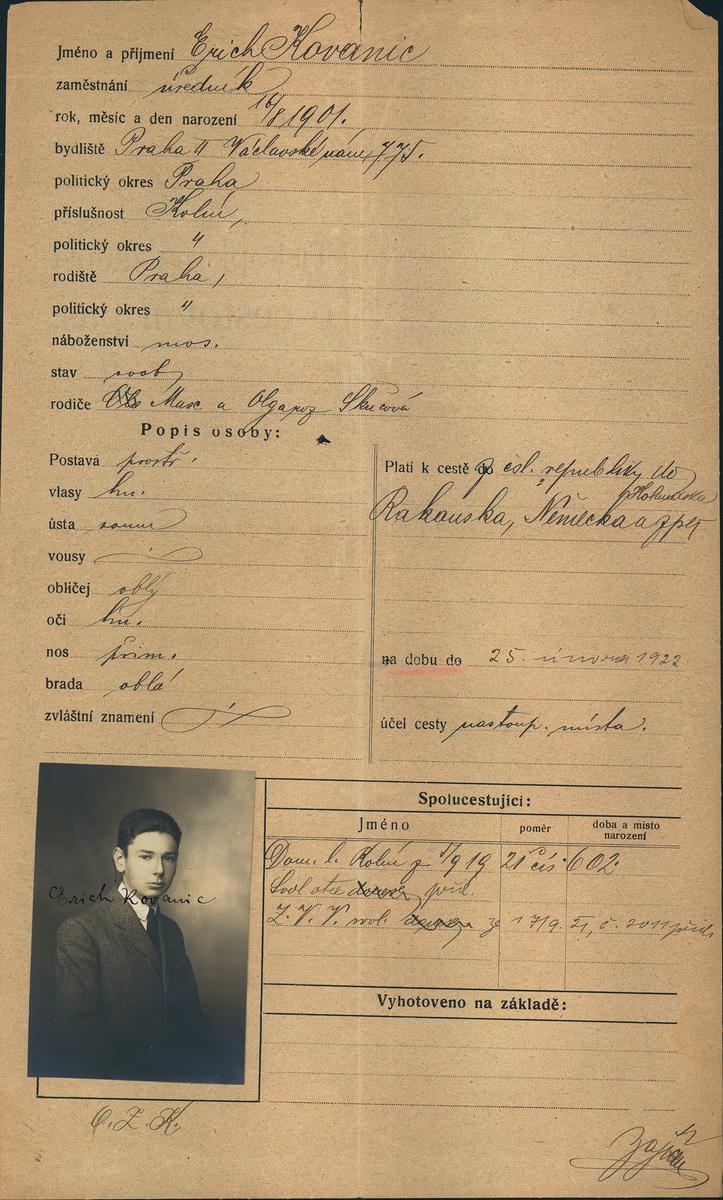 Jméno a příjmení Erich Kovanic
zaměstnání úředník
rok, měsíc a den narození 16/8 1901.
bydliště Praha II Václavské nám 775.
politický okres Praha
příslušnost Kolín,
politický okres "
rodiště Praha,
politický okres "
náboženství mos.
stav svob.
rodiče Max a Olga roz Skučová
Popis osoby:
Postavá prostř.
vlasy hn.
ústa soum
vousy ·/·
obličej oblý
oči hn.
nos přim.
brada oblá
zvláštní znamení ·/·
Platí k cestě z čsl. republiky do
Holandska
Rakouska, Německa a zpět
na dobu do 25. února 1922
účel cesty nastoup. místa.
Spolucestující:
Jméno poměr doba a místo narození
Dom. l. Kolín z 5/9 19 21 čís. 602.
Svol otce přil.
Z. V. V. svol. ze 17/9. 21, č. 2011 přil.
Erich Kovanic
Vyhotoveno na základě: